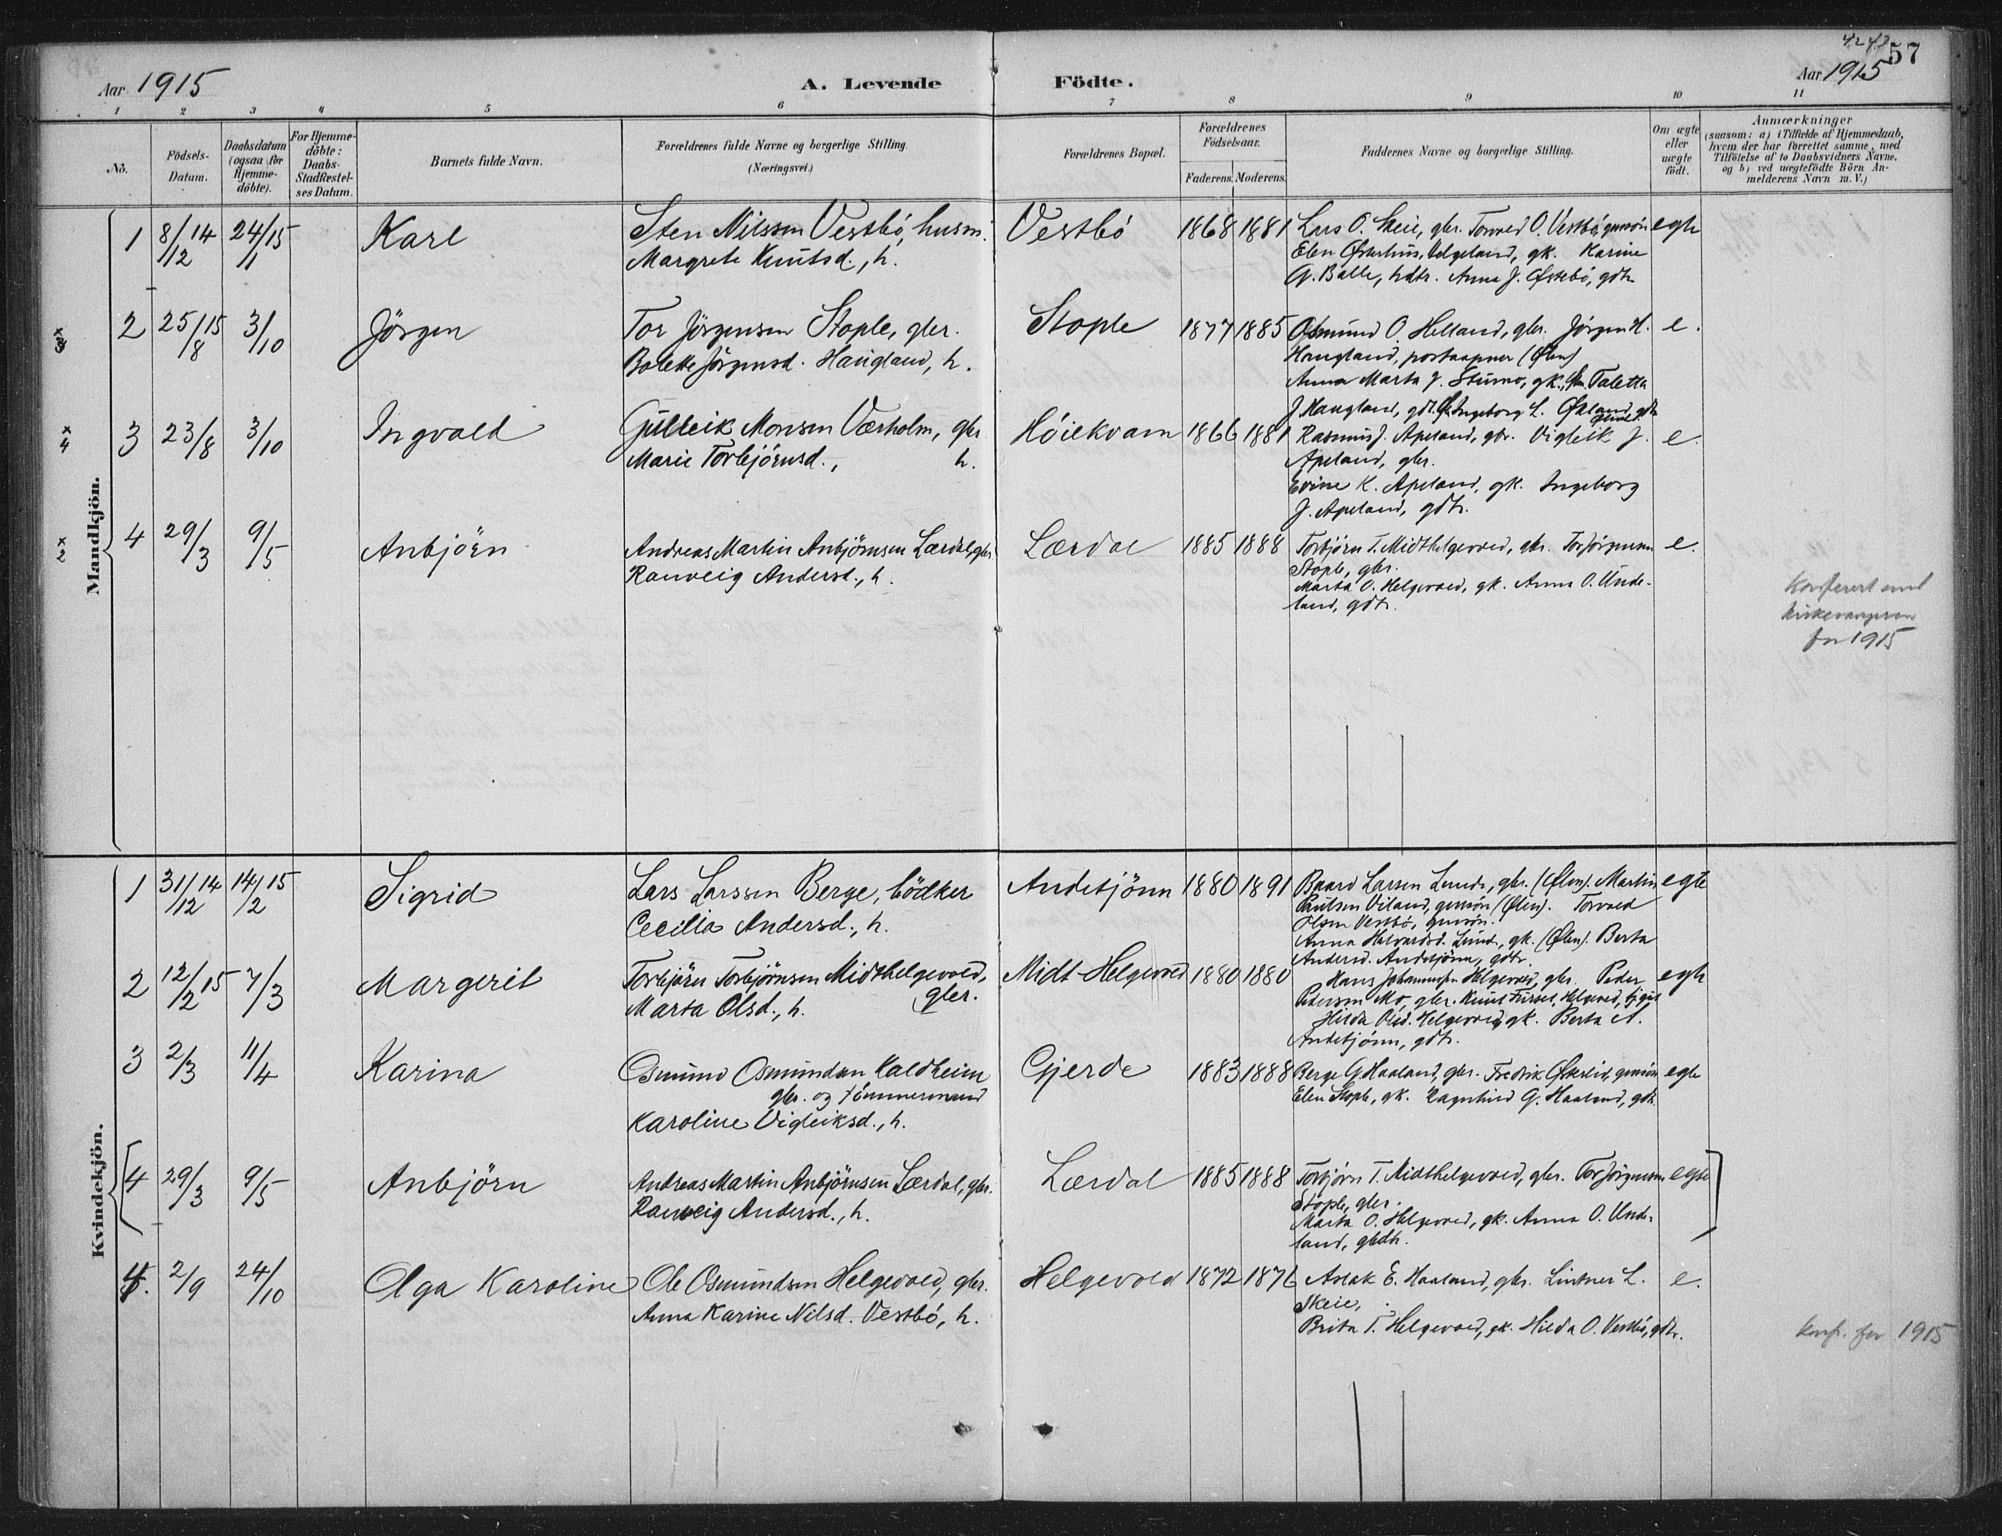 42 43
57
Aar 1915
A. Levende Födte.
Aar 1915
1 2 3 4 5 6 7 8 9 10 11
No.
Födsels-Datum.
Daabsdatum (ogsaa for Hjemme-döbte).
For Hjemme-döbte: Daabs-Stadfæstel-ses Datum.
Barnets fulde Navn.
Forældrenes fulde Navne og borgerlige Stilling. (Næringsvei.)
Forældrenes Bopæl.
Forældrenes Födselsaar.
Faderens. Moderens.
Faddernes Navne og borgerlige Stilling.
Om ægte eller uægte födt.
Anmærkninger
(saasom: a) i Tilfælde af Hjemmedaab,
hvem der har forrettet samme, med
Tilföielse af to Daabsvidners Navne.
og b) ved uægtefödte Börn An-
melderens Navn m. V.)
Mandkjön.
1 8/12 14 24/1 15 Karl
Sten Nilssen Vestbö, husm.
Margrete Knutsd., h.
Vestbö 1868 1881
Lars O. Skeie, gbr. Torvald O. Vestbö, gmsön
Elen Østerhus, Velgeland, gk. Karine
G. Balle, hdtr. Anna J. Østebö, gdtr.
egte
x 3
2 25/8 15 3/10 Jörgen
Tor Jörgensen Stople, gbr.
Bolette Jörgensd. Haugland, h.
Stople 1877 1885
Osmund O. Helland, gbr. Jörgen H.
Haugland, postaapner (Ølen)
Anna Marta J. Stumo, gk., Taletta
J. Haugland, gdt. Ingeborg L. Økland, gdtr.
e.
x 4
3 23/8 3/10 Ingvald
Gulleik Monsen Værholm, gbr.
Marie Torbjörnsd., h.
Höiekvam 1866 1881
Rasmus J. Apeland, gbr. Vigleik J.
Apeland, gbr.
Evine K. Apeland, gk. Ingeborg
J. Apeland, gdtr.
e.
x 2
4 29/3 9/5 Anbjörn
Andreas Martin Anbjörnsen Lærdal, gbr.
Ranveig Andersd., h.
Lærdal 1885 1888
Torbjörn T. Midthelgevold, gbr. Tor Jörgensen
Stople, gbr.
Marta O. Helgevold, gk. Anna O. Unde-
land, gdtr.
e.
Konferert med
kirkebangeren
for 1915
Kvindekjön.
1 31/12 14 14/2 15 Sigrid
Lars Larssen Berge, bödker
Cecilia Andersd., h.
Andetjönn 1880 1891
Baard Larsen Lunde, gbr. (Ølen). Martin
Paulsen Viland, gmsön (Ølen). Torvald
Olsen Vestbö, gmsön.
Anna Halvardsd. Lunde, gk. (Ølen). Berta
Andersd. Andetjönn, gdtr.
egte
2 12/2 15 7/3 Margerit
Torbjörn Torbjörnsen Midthelgevold,
gbr.
Marta Olsd., h.
Midt-Helgevold 1880 1880
Hans Johannessen Helgevold, gbr. Peder
Pedersen Mo, gbr. Knut Furset, Helgevold,
Hilda Olsd. Helgevold, gk. Berta A.
Andetjönn, gdtr.
egte
3 2/3 11/4 Karina
Osmund Osmundsen Kaldheim
gbr. og tömmermand
Karoline Vigleiksd., h.
Gjerde 1883 1888
Berge G. Haaland, gbr. Fredrik Østerlid, gmsön
Elen Stople, gk. Ragnhild G. Haaland, gdt.
egte
4 29/3 9/5 Anbjörn
Andreas Martin Anbjörnsen Lærdal, gbr.
Ranveig Andersd., h.
Lærdal 1885 1888
Torbjörn T. Midthelgevold, gbr. Tor Jörgensen
Stople, gbr.
Marta O. Helgevold, gk. Anna O. Unde-
land, gbdtr.
egte
4. 2/9 24/10 Olga Karoline
Ole Osmundsen Helgevold, gbr.
Anna Karine Nilsd. Vestbö, h.
Helgevold 1872 1876
Aslak E. Haaland, gbr. Lintner L.
Skeie,
Brita T. Helgevold, gk. Hilda O. Vestbö, gdtr.
e.
konf. for 1915